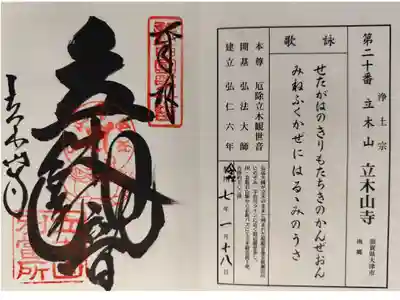 第二十番 立木山 立木山寺
浄土宗
滋賀県大津市
南郷
詠歌
せたがはのきりもたちきのかんぜおん
みねふくかぜにはるゝみのうさ
本尊 厄除立木観世音
開基 弘法大師
建立 弘仁六年
七年一月十八日
奉拝
立木観音
立木山寺